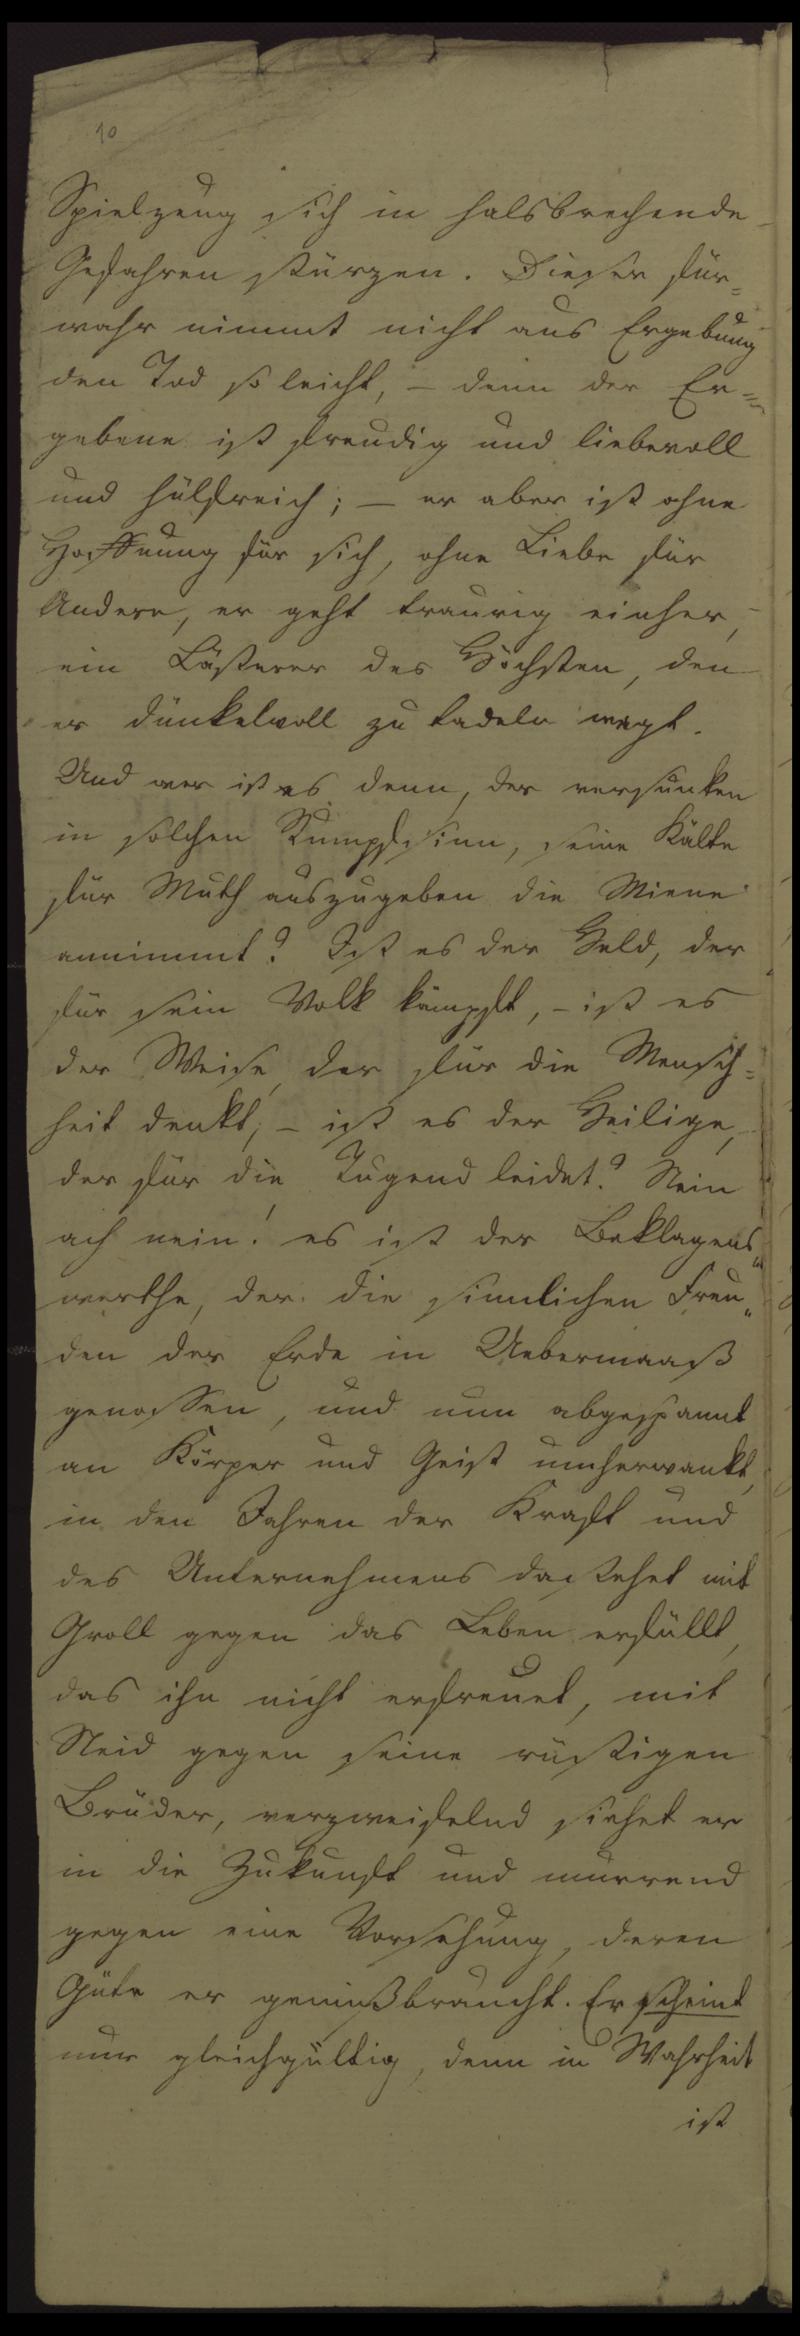 10
Spielzeug sich in halsbrechende
Gefahren stürzen. Dieser für=
wahr nimmt nicht aus Ergebung
den Tod so leicht, – denn der Er=
gebene ist freudig und liebevoll
und hülfreich; – er aber ist ohne
Hoffnung für sich, ohne Liebe für
Andere, er geht traurig einher,
ein Lästerer des Höchsten, den
er dünkelvoll zu tadeln wagt.
Und wer ist es denn, der versunken
in solchen Stumpfsinn, seine Kälte
für Muth auszugeben die Miene
annimmt? Ist es der Held, der
für sein Volk kämpft, – ist es
der Weise, der für die Mensch=
heit denkt, – ist es der Heilige,
der für die Tugend leidet? Nein
ach nein! es ist der Beklagens"
werthe, der die sinnlichen Freu"
den der Erde in Uebermaaß
genossen, und nun abgespannt
an Körper und Geist umherwankt,
in den Jahren der Kraft und
des Unternehmens dastehet mit
Groll gegen das Leben erfüllt,
das ihn nicht erfreuet, mit
Neid gegen seine rüstigen
Brüder, verzweifelnd siehet er
in die Zukunft und murrend
gegen eine Vorsehung, deren
Güte er gemißbraucht. Er scheint
nur gleichgültig, denn in Wahrheit
ist